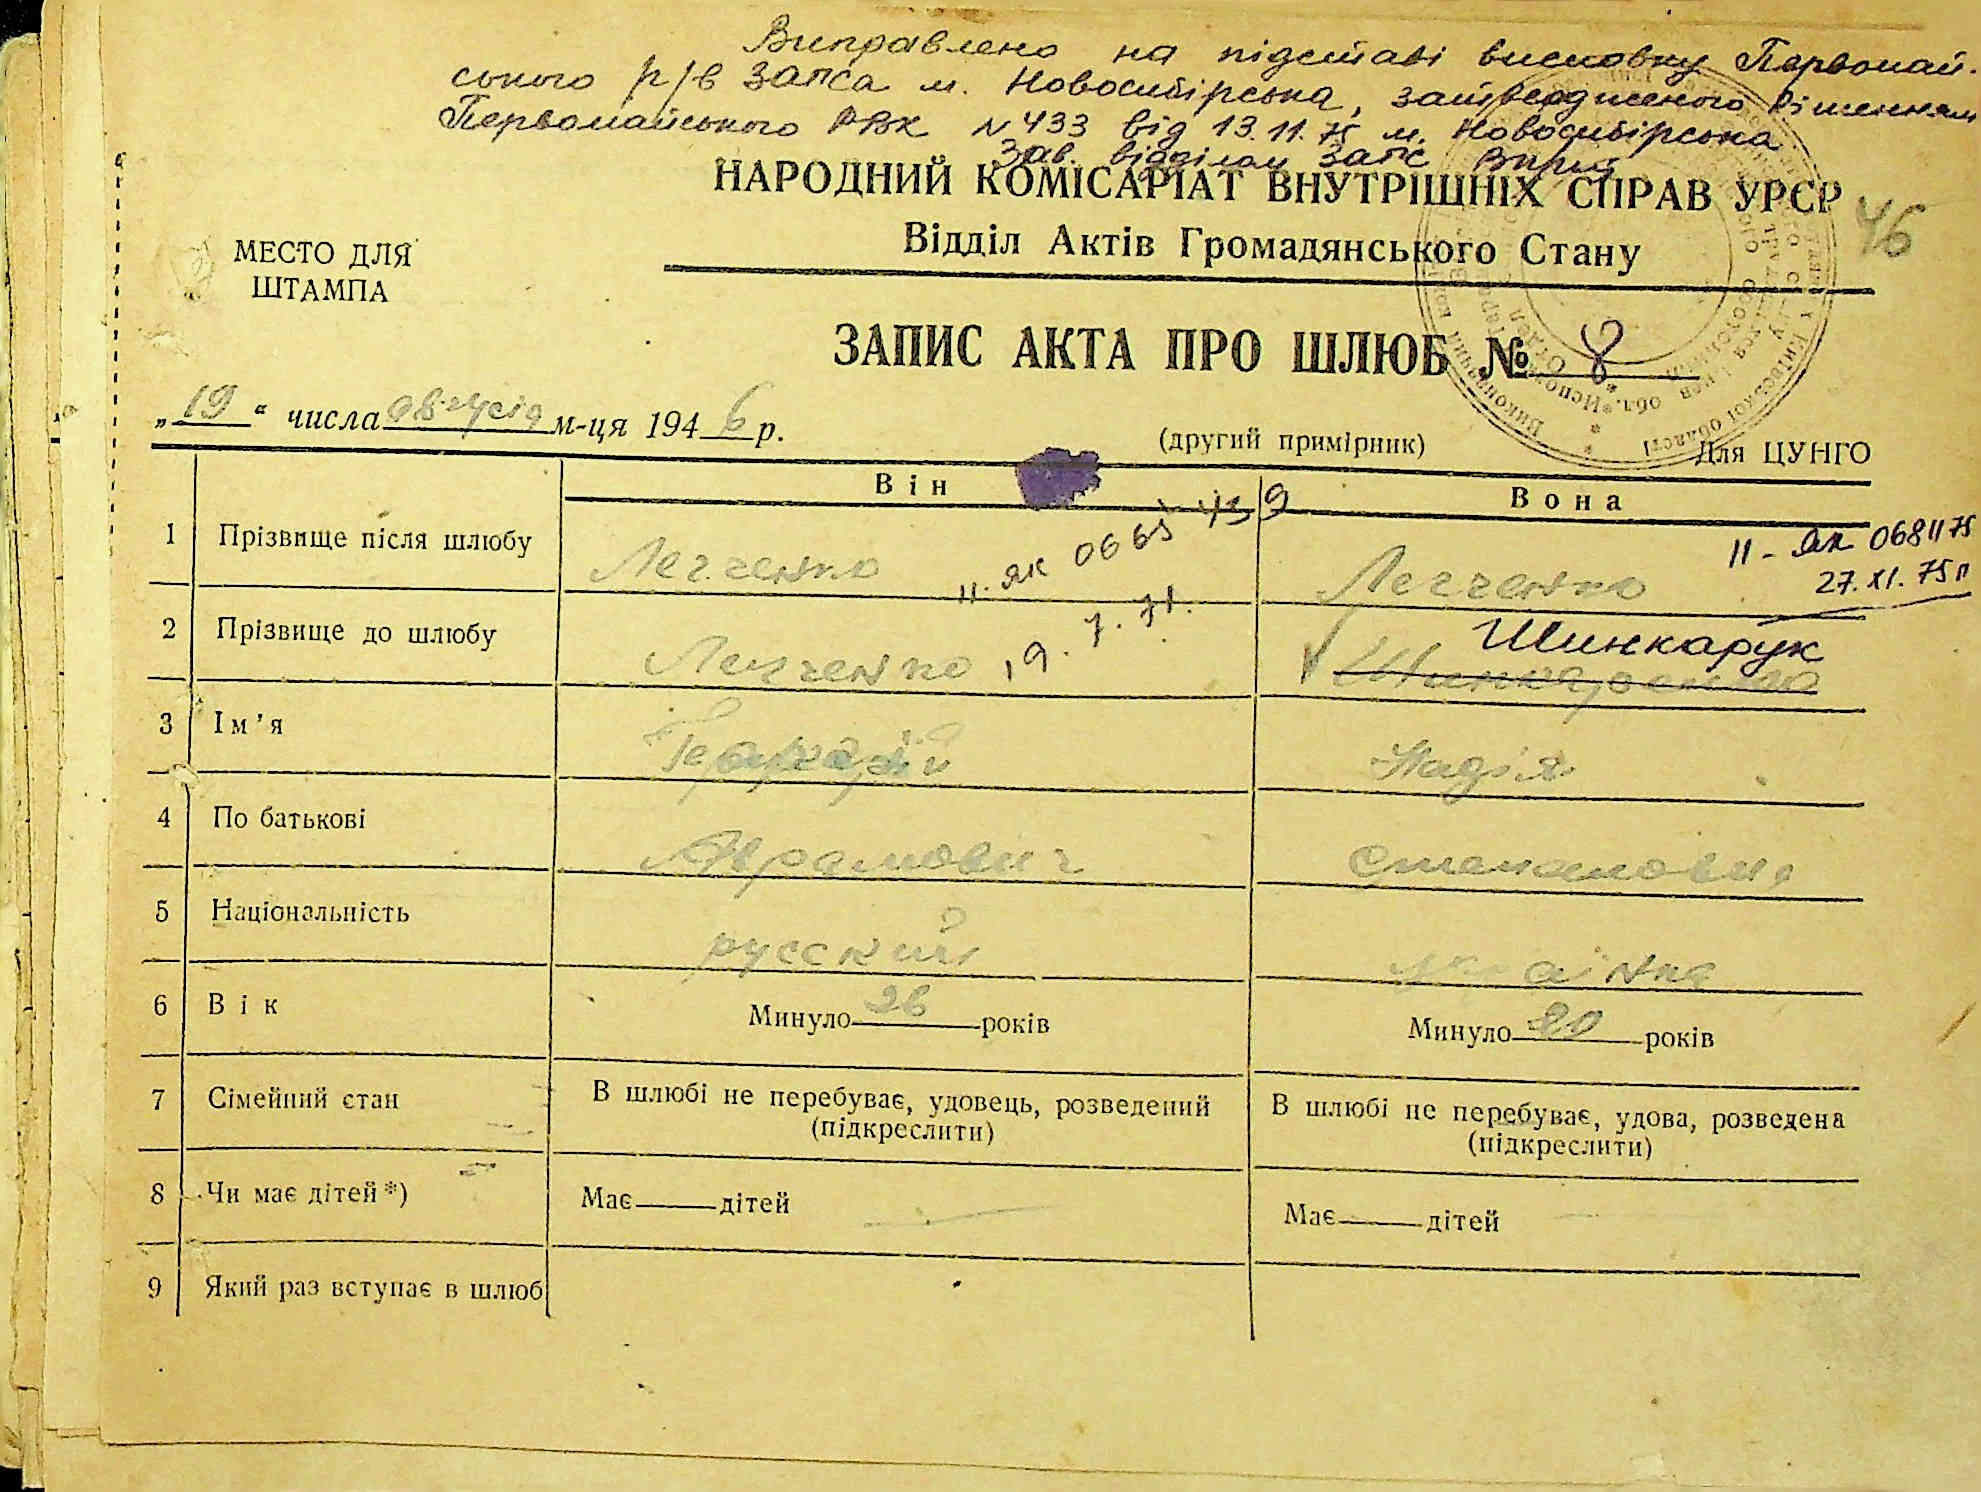 Виправлено на підставі висновку Первомай-
ського р/в ЗАГСа м. Новосибірська, затвердженого рішенням
Первомайського РВК N 433 від 13.11.75 м. Новосибірська
Зав. відділом ЗАГС
НАРОДНИЙ КОМІСАРІАТ ВНУТРІШНІХ СПРАВ УРСР
46
Відділ Актів Громадянського Стану
МЕСТО ДЛЯ
ШТАМПА
ЗАПИС АКТА ПРО ШЛЮБ № 8
„19“ числа августа м-ця 1946 р.
(другий примірник)
Для ЦУНГО
Він
Вона
1 Прізвище після шлюбу
II. ЯК 0665439
19. 7. 71.
II - ЯК 0681175
27. XI. 75 п
2 Прізвище до шлюбу
Шинкарук
3 Ім'я
Надія
4 По батькові Абрамович
5 Національність русский українка
6 Вік Минуло 26 років Минуло 20 років
7 Сімейний стан В шлюбі не перебуває, удовець, розведений В шлюбі не перебуває, удова, розведена
(підкреслити) (підкреслити)
8 Чи має дітей*) Має дітей Має дітей
9 Який раз вступає в шлюб